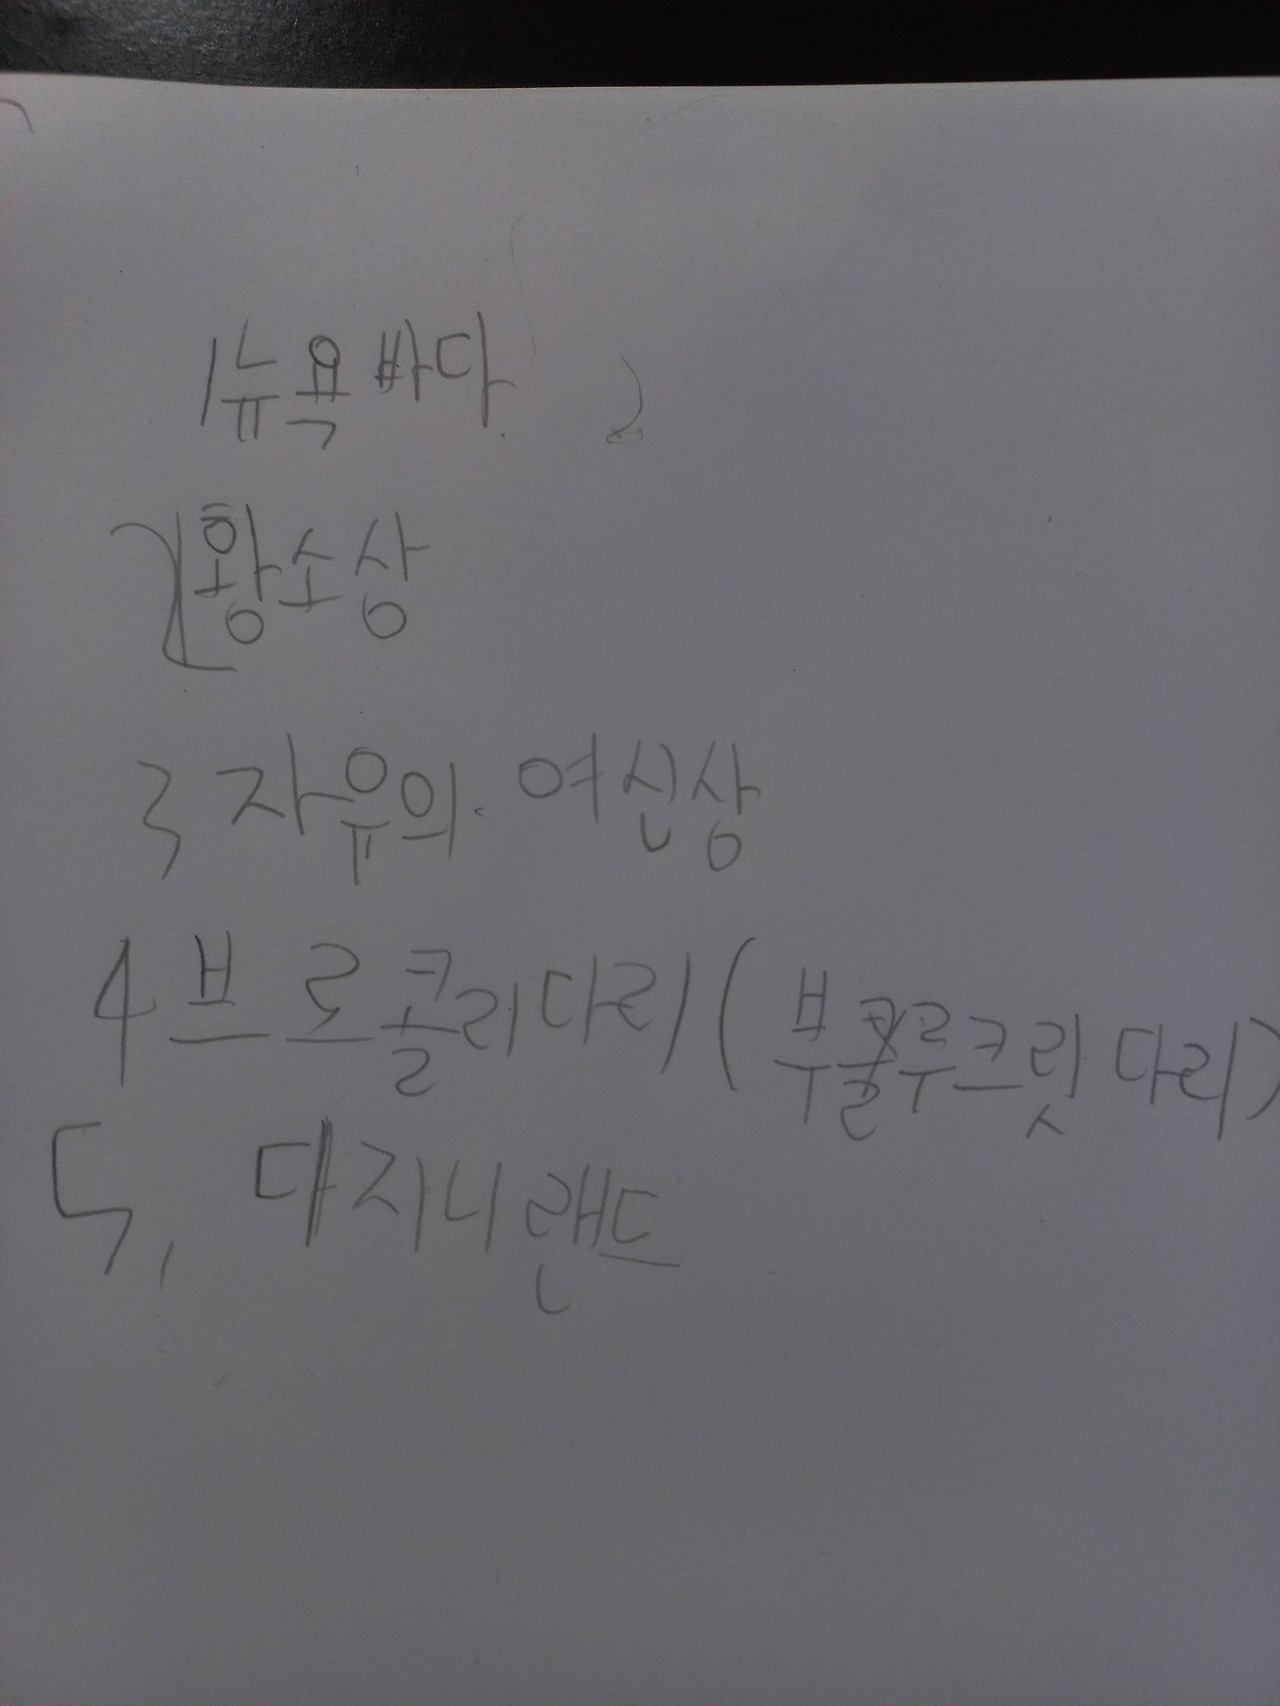 1 뉴욕 바다.
2 황소상
3 자유의. 여신상
4 브로콜리다리 (부루크릿 다리)
5, 다지니랜드